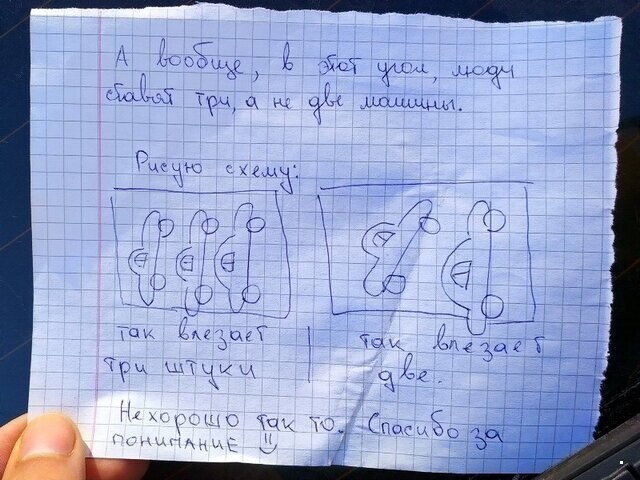 А вообще, в этот угол, люди
ставят три, а не две машины.
Рисую схему:
так влезает
три штуки
так влезает
две.
Нехорошо так то. Спасибо за
понимание